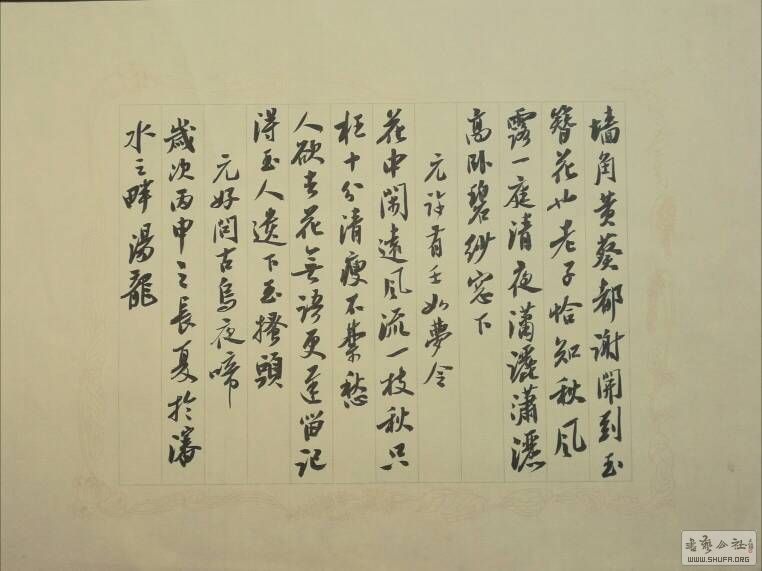 墙角黄葵都谢開到玉
簪花也老子恰知秋风
露一庭清夜瀟灑瀟灑
高卧碧纱窓下
元许有壬如夢令
花中閑遠风流一枝秋只
枉十分清瘦不禁愁
人欲去花無语更遲留记
得玉人遗下玉搔頭
元好问古烏夜啼
歲次丙申之長夏於瀋
水之畔 湯龍
书艺公社
WWW.SHUFA.ORG